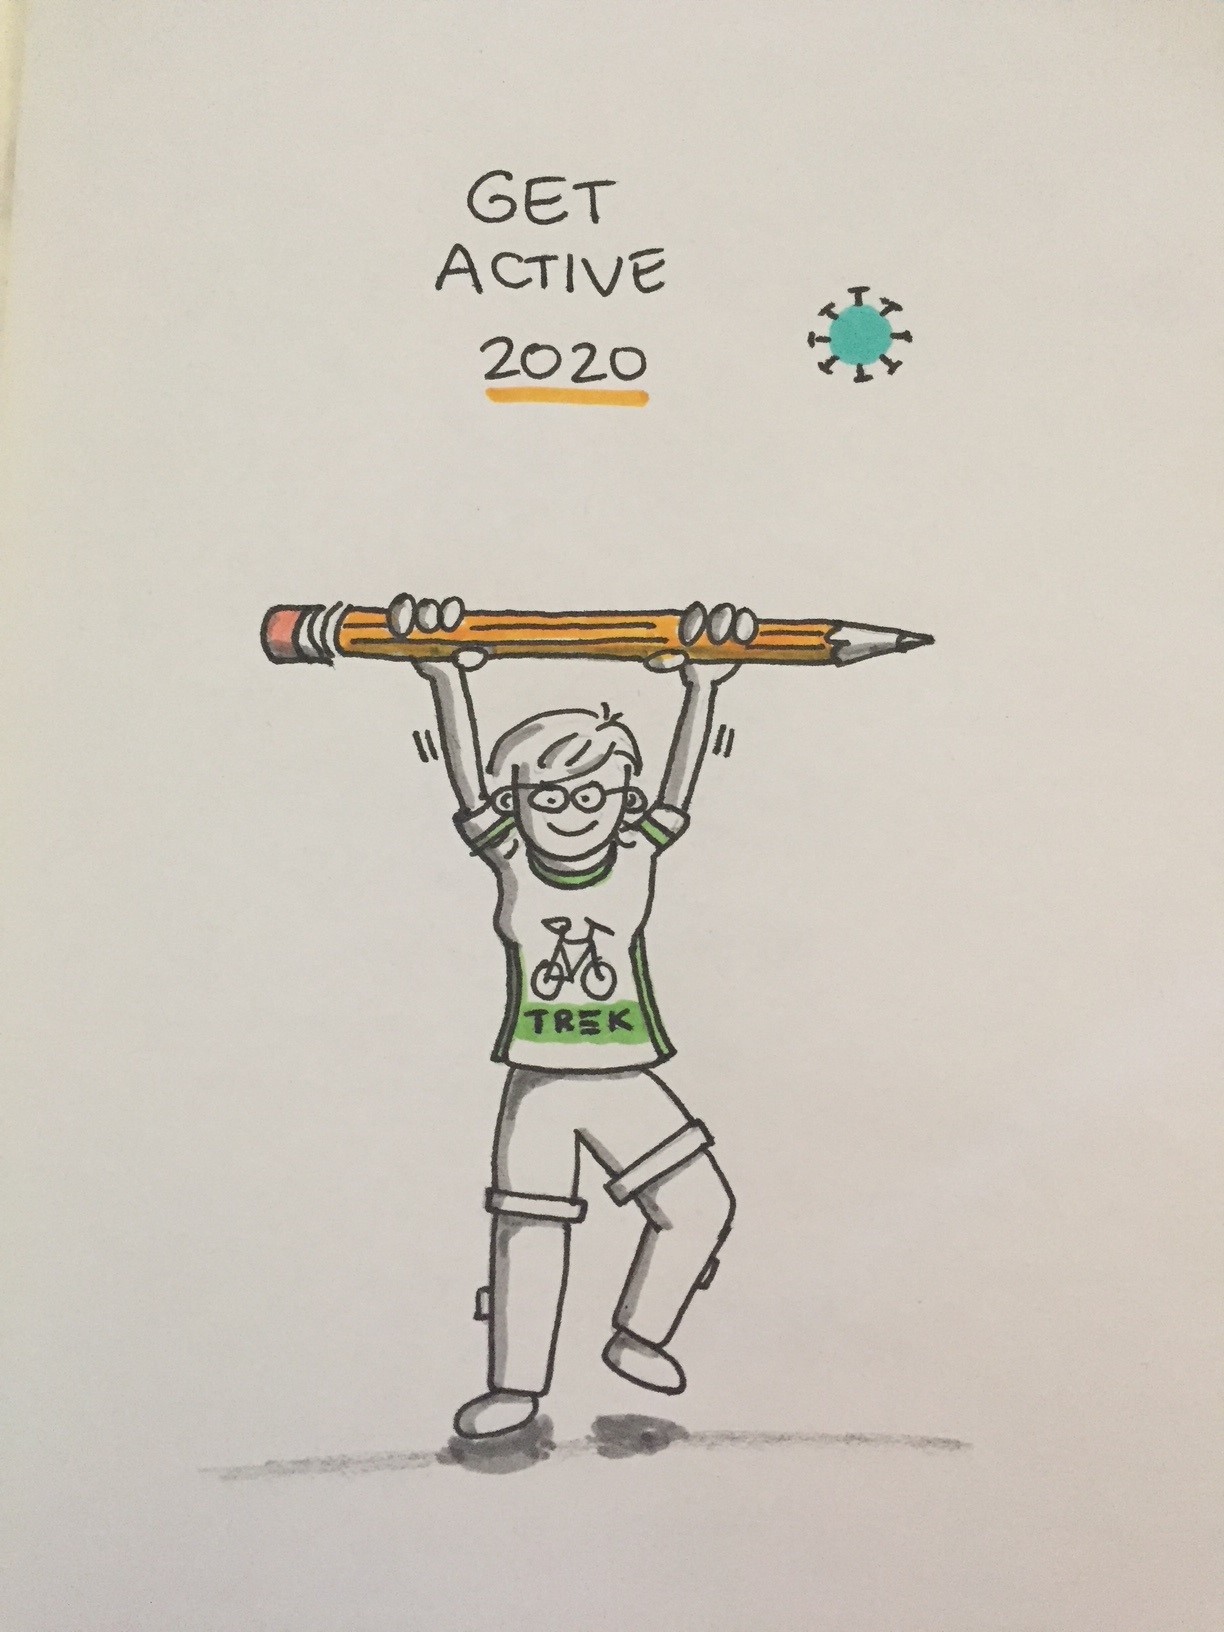 GET
ACTIVE
2020
TREK